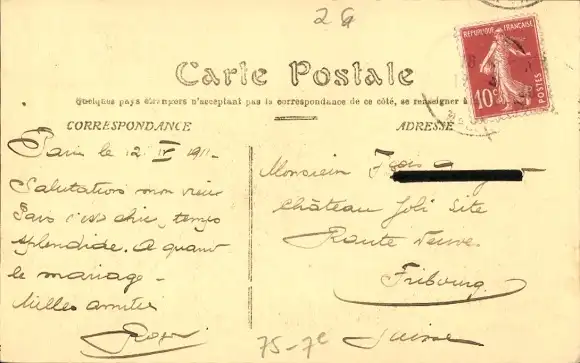 2 G
RÉPUBLIQUE FRANÇAISE
10c
POSTES
Carte Postale
Quelques pays étrangers n'acceptant pas la correspondance de ce côté, se renseigner à
CORRESPONDANCE
ADRESSE
Paris le 12 IV 1911-
Salutations mon vieux
Paris c'est chic, temps
splendide. A quand
le mariage -
Milles amitiés
Roger
Monsieur
Château Joli Site
Route Neuve
Fribourg
Suisse
75-7e